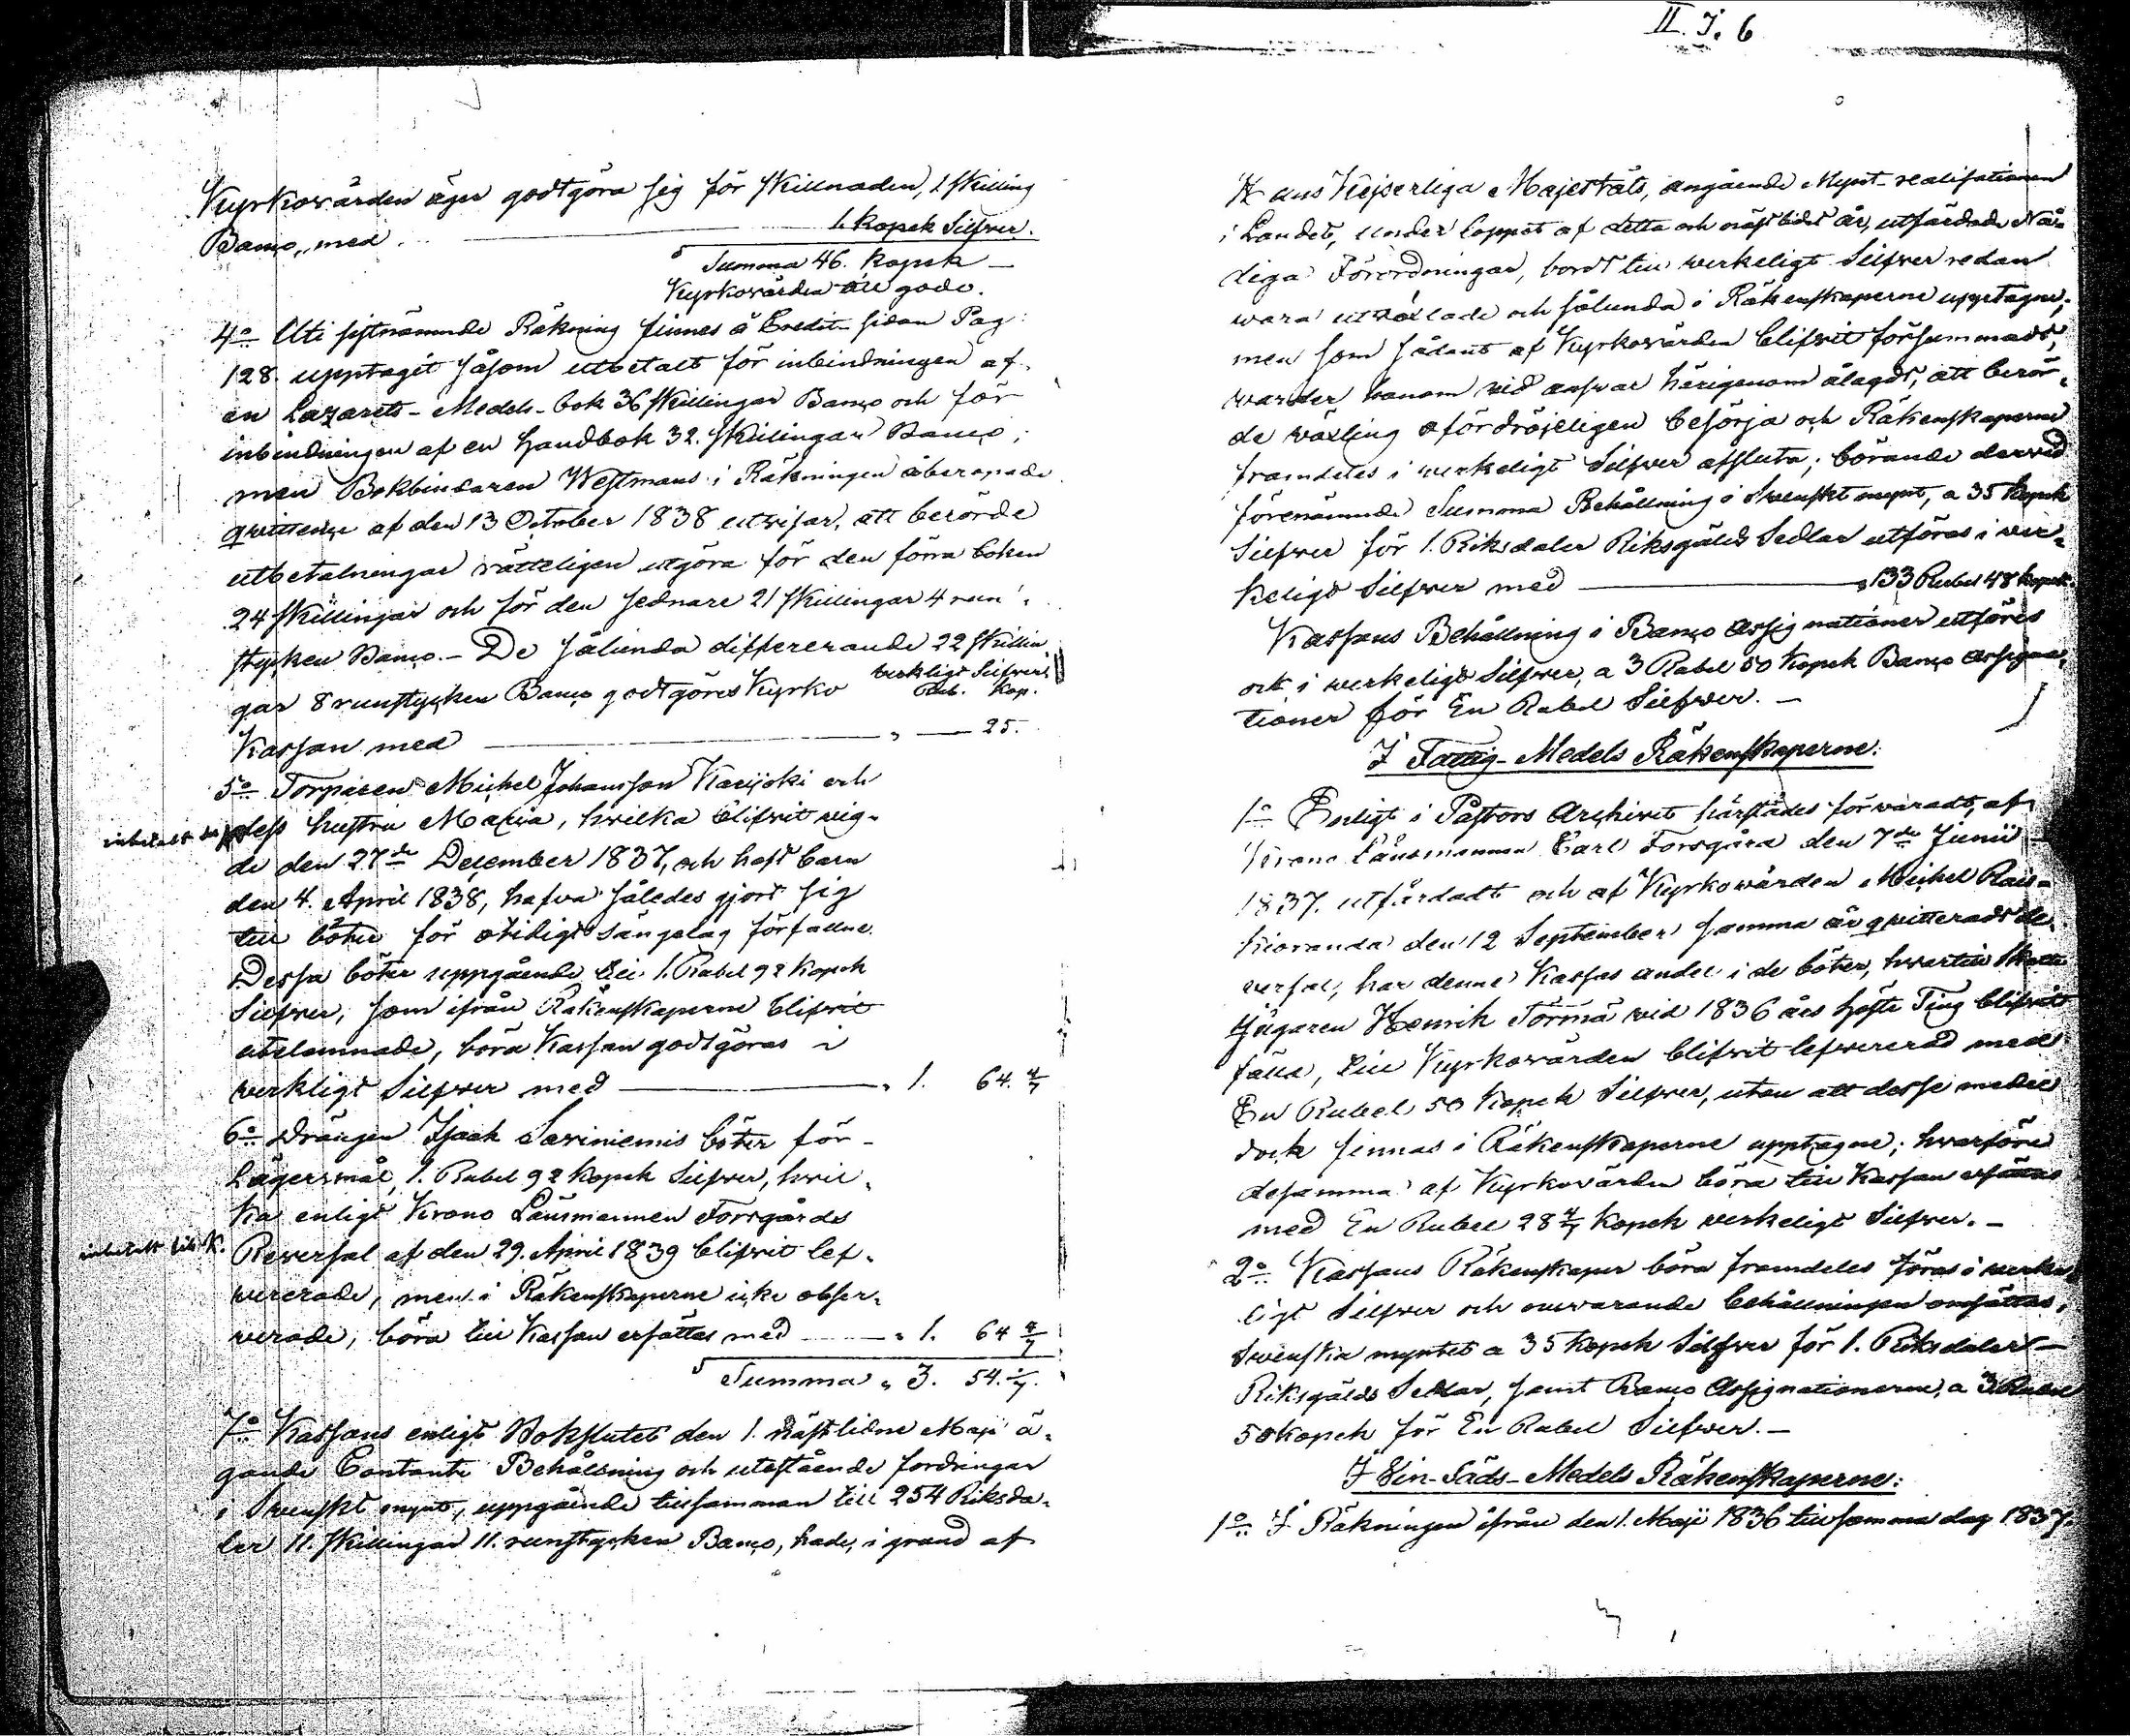 II. J. 6
Kyrkovärden äger godtgöra sig för skillnaden, 1 skilling
Banco, med 1. kopek Silfver.
Summa 46. kopek
Kyrkovärden till godo.
4:o Uti sistnämnde Räkning finnes å Credit sidan Pag:
128. upptagit såsom utbetalt för inbindningen af
en Lazarets-Medels-bok 36 skillingar Banco och för
inbindningen af en handbok 32. skillingar Banco;
men Bokbindaren Westmans i Räkningen åberopade
qvittence af den 13 October 1838 utvisar, att berörde
utbetalningar rätteligen utgöra för den förra boken
24 skillingar och för den sednare 21 skillingar 4 run-
stycken Banco. - De sålunda differerande 22 skillin-
gar 8 runstycken Banco godtgöres Kyrko
verkligt Silfver
Rub. Kop.
Kassan med " 25.
5:o Torparen Michel Johansson Karijoki och
inbetalt
dess hustru Maria, hvilka blifvit vig-
de den 27de December 1837, och haft barn
den 4. April 1838, hafva således gjort sig
till böter för otidigt sängelag förfallne.
Dessa böter uppgående till 1. Rubel 92 kopek
Silfver, som ifrån Räkenskaperne blifvit
utelemnade, böra Kassan godtgöras i
verkligt Silfver med " 1. 64. 4/7
6:o Drängen Isaak Saviniemis böter för
Lägersmål, 1. Rubel 92 kopek Silfver, hvil-
ka enligt Krono Länsmannen Forsgårds
inbetalt till K.
Reversal af den 29. April 1839 blifvit lef-
vererade, men i Räkenskaperne icke obser-
verade, böra till Kassan ersättas med " 1. 64 4/7
Summa " 3. 54. 1/7.
7:o Kassans enligt Bokslutet den 1. nästlidne Maji ä-
gande Contante Behållning och utestående fordringar
i Svenskt mynt, uppgående tillsamman till 254 Riksda-
ler 11. skillingar 11. runstycken Banco, hade, i grund af
Hans Kejserliga Majestäts, angående Mynt-realisationen
i Landet, under loppet af detta och näst lidet år, utfärdade Nå-
diga Förordningar, bordt till verkeligt Silfver redan
vara utvexlade och sålunda i Räkenskaperne upptagne;
men som sådant af Kyrkovärden blifvit försummadt,
varder honom vid answar härigenom ålagdt, att berör-
de växling ofördröjeligen besörja och Räkenskaperne
framdeles i verkeligt Silfver afsluta; börande dervid
förenämnde Summa Behållning i Svenskt mynt, a 35 kopek
Silfver för 1. Riksdaler Riksgälds Sedlar utföras i ver-
keligt Silfver med " 133 Rubel 48 kopek.
Kassans Behållning i Banco Assignationer utföres
ock i verkeligt Silfver, a 3 Rubel 50 Kopek Banco Assigna-
tioner för En Rubel Silfver. -
I Fattig-Medels Räkenskaperne:
1:o Enligt i Pastors Archivet härstädes förvaradt, af
Krono Länsmannen Carl Forsgård den 7de Junii
1837. utfärdadt och af Kyrkovärden Michel Rais-
kioranda den 12 September samma år qvitteradt Re-
versal, har denne Kassas andel i de böter, hvartill Skatte
Ägaren Henrik Törmä vid 1836 års höste Ting blifvit
fälld, till Kyrkovärden blifvit lefvererad med
En Rubel 50 kopek Silfver, utan att desse medel
dock finnas i Räkenskaperne upptagne; hvarföre
desamma af Kyrkovärden böra till Kassan ersättas
med En Rubel 28 4/7 kopek verkeligt Silfver. -
2:o Kassans Räkenskaper böra framdeles föras i verke-
ligt Silfver och nuvarande behållningen omsättas,
Svenska myntet a 35 kopek Silfver för 1. Riksdaler
Riksgälds Sedlar, samt Banco Assignationerne, a 3 Rubel
50 kopek för En Rubel Silfver. -
I Vin-Säds-Medels Räkenskaperne:
1:o I Räkningen ifrån den 1. Maji 1836 till samma dag 1837.